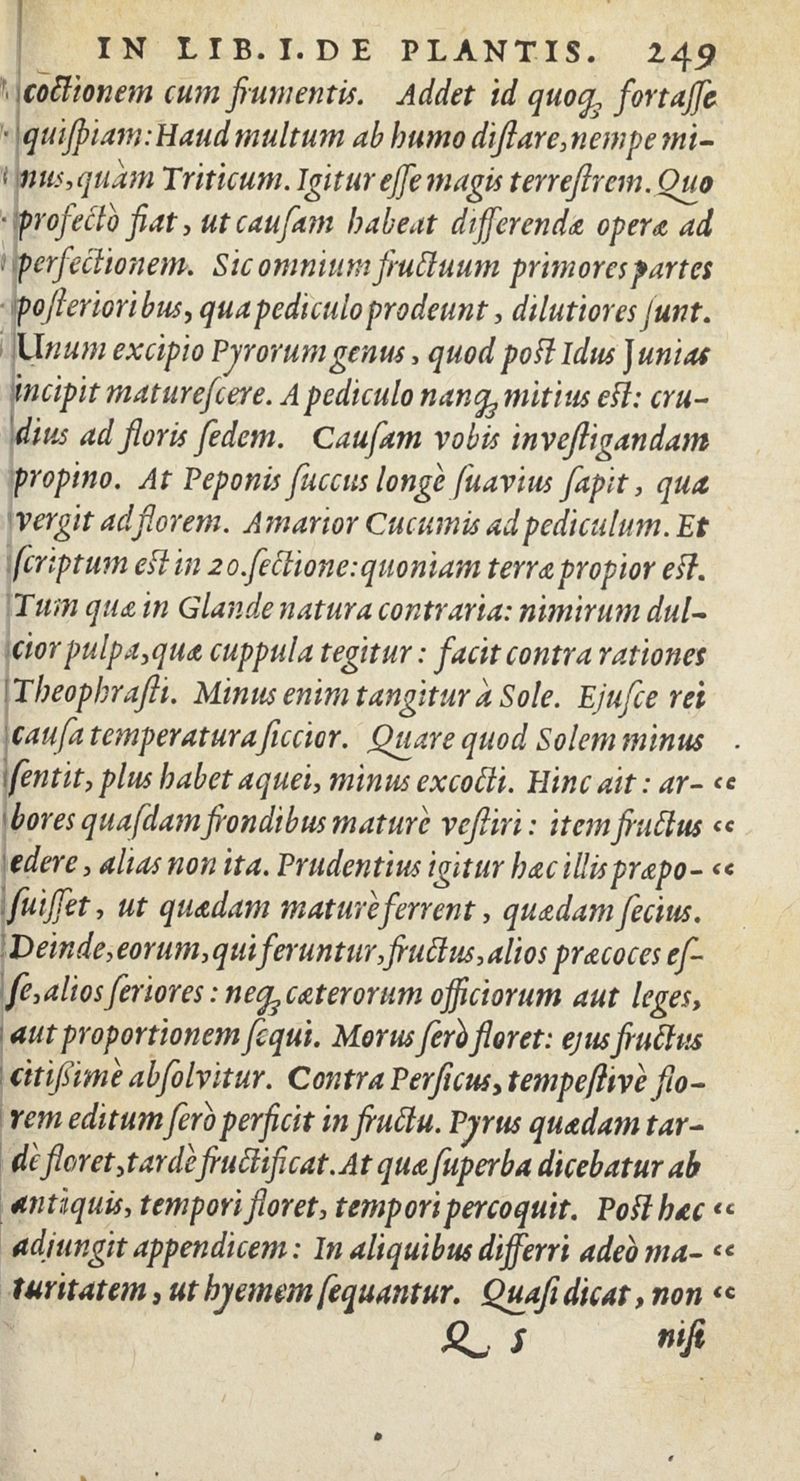 IN LIB. I. DE PLANTIS. 249
coctionem cum frumentis. Addet id quoqꝫ fortaſſe
quiſpiam: Haud multum ab humo diſtare, nempe mi-
nus, quàm Triticum. Igitur eſſe magis terreſtrem. Quo
profectò fiat, ut cauſam habeat differendæ operæ ad
perfectionem. Sic omnium fructuum primores partes
poſterioribus, qua pediculo prodeunt, dilutiores ſunt.
Unum excipio Pyrorum genus, quod poſt Idus Junias
incipit matureſcere. A pediculo nanqꝫ mitius eſt: cru-
dius ad floris ſedem. Cauſam vobis inveſtigandam
propino. At Peponis ſuccus longè ſuavius ſapit, qua
vergit ad florem. Amarior Cucumis ad pediculum. Et
ſcriptum eſt in 20. ſectione: quoniam terræ propior eſt.
Tum quæ in Glande natura contraria: nimirum dul-
cior pulpa, quæ cuppula tegitur: facit contra rationes
Theophraſti. Minus enim tangitur à Sole. Ejuſce rei
cauſa temperatura ſiccior. Quare quod Solem minus
ſentit, plus habet aquei, minus excocti. Hinc ait: ar- “
bores quaſdam frondibus maturè veſtiri: item fructus “
edere, alias non ita. Prudentius igitur hæc illis præpo- “
ſuiſſet, ut quædam maturè ferrent, quædam ſecius.
Deinde, eorum, qui feruntur, fructus, alios præcoces eſ-
ſe, alios ſeriores: neqꝫ cæterorum officiorum aut leges,
aut proportionem ſequi. Morus ſerò floret: ejus fructus
citiſſimè abſolvitur. Contra Perſicus, tempeſtivè flo-
rem editum ſerò perficit in fructu. Pyrus quædam tar-
dè floret, tardè fructificat. At quæ ſuperba dicebatur ab
antiquis, tempori floret, tempori percoquit. Poſt hæc “
adjungit appendicem: In aliquibus differri adeò ma- “
turitatem, ut hyemem ſequantur. Quaſi dicat, non “
Q 5 niſi